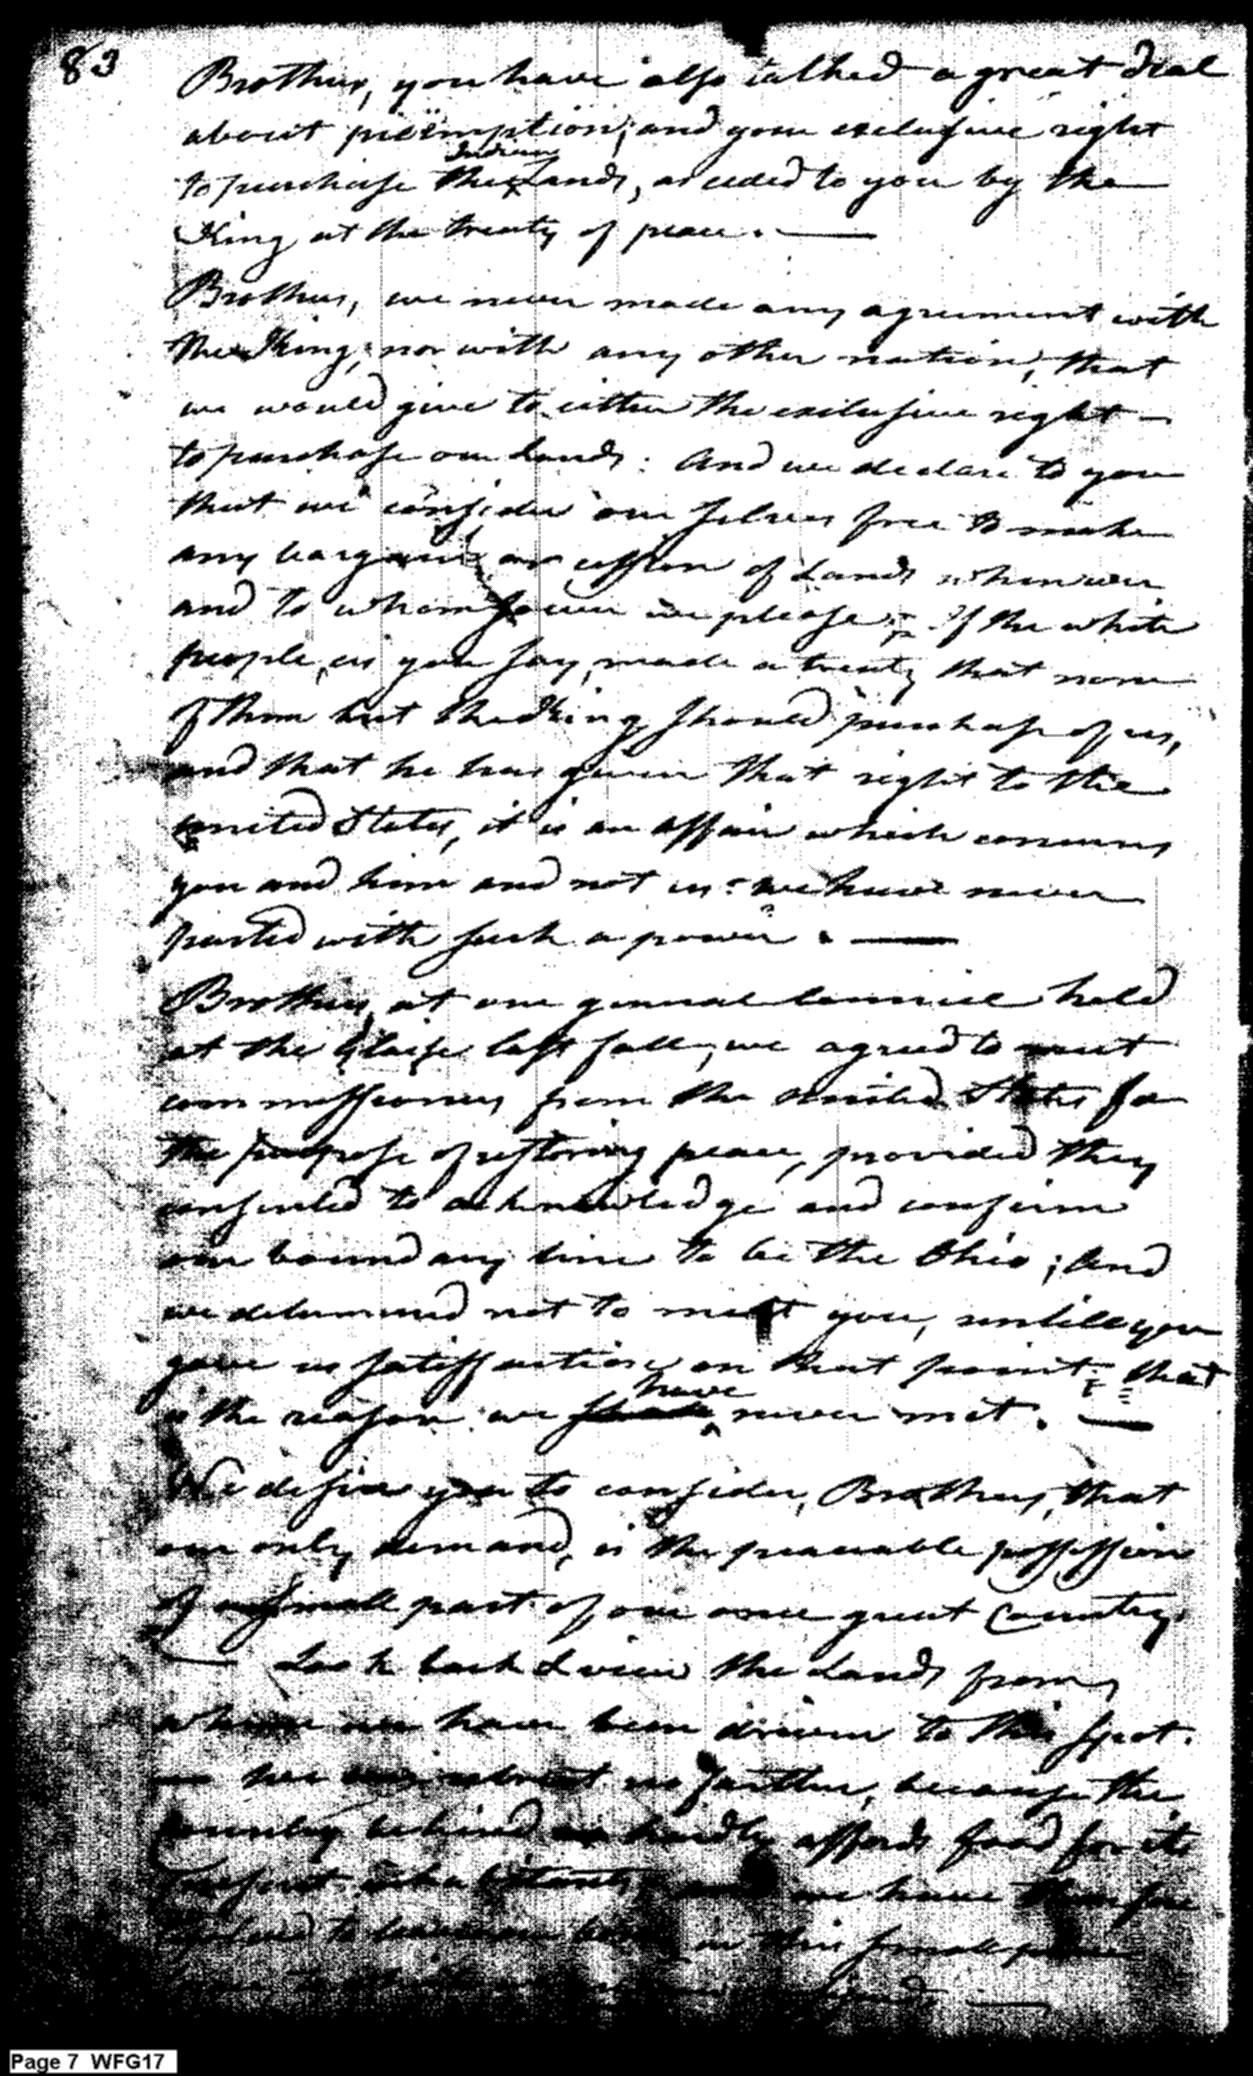 83
Brothers, you have also talked a great deal
about preëmption; and your exclusive right
Indian
to purchase the Lands, as ceded to you by the
King at the treaty of peace. —
Brothers, we never made any agreement with
the King, nor with any other nation, that
we would give to either the exclusive right —
to purchase our Lands: And we declare to you
that we consider our selves free to make
any bargain or cession of Lands whenever
and to whomsoever we please; — If the white
people, as you say, made a treaty that none
of them but the King should purchase of us,
and that he has given that right to the
united States, it is an affair which concerns
you and him and not us: we have never
parted with such a power. —
Brothers, at our general Council held
at the Glaise last fall, we agreed to meet
commissioners from the united States for
the purpose of restoring peace, provided they
consented to acknowledge and confirm
our boundary line to be the Ohio; And
we determined not to meet you, untill you
gave us satisfaction on that point: that
have
is the reason we never met. —
We desire you to consider, Brothers, that
our only demand, is the peaceable possession
of a small part of our once great Country.
— Look back & view the Lands from
whence we have been driven to this spot.
— We can retreat no farther, because the
country behind hardly affords food for its
present inhabitants; and we have therefore
resolved to leave our bones in this small